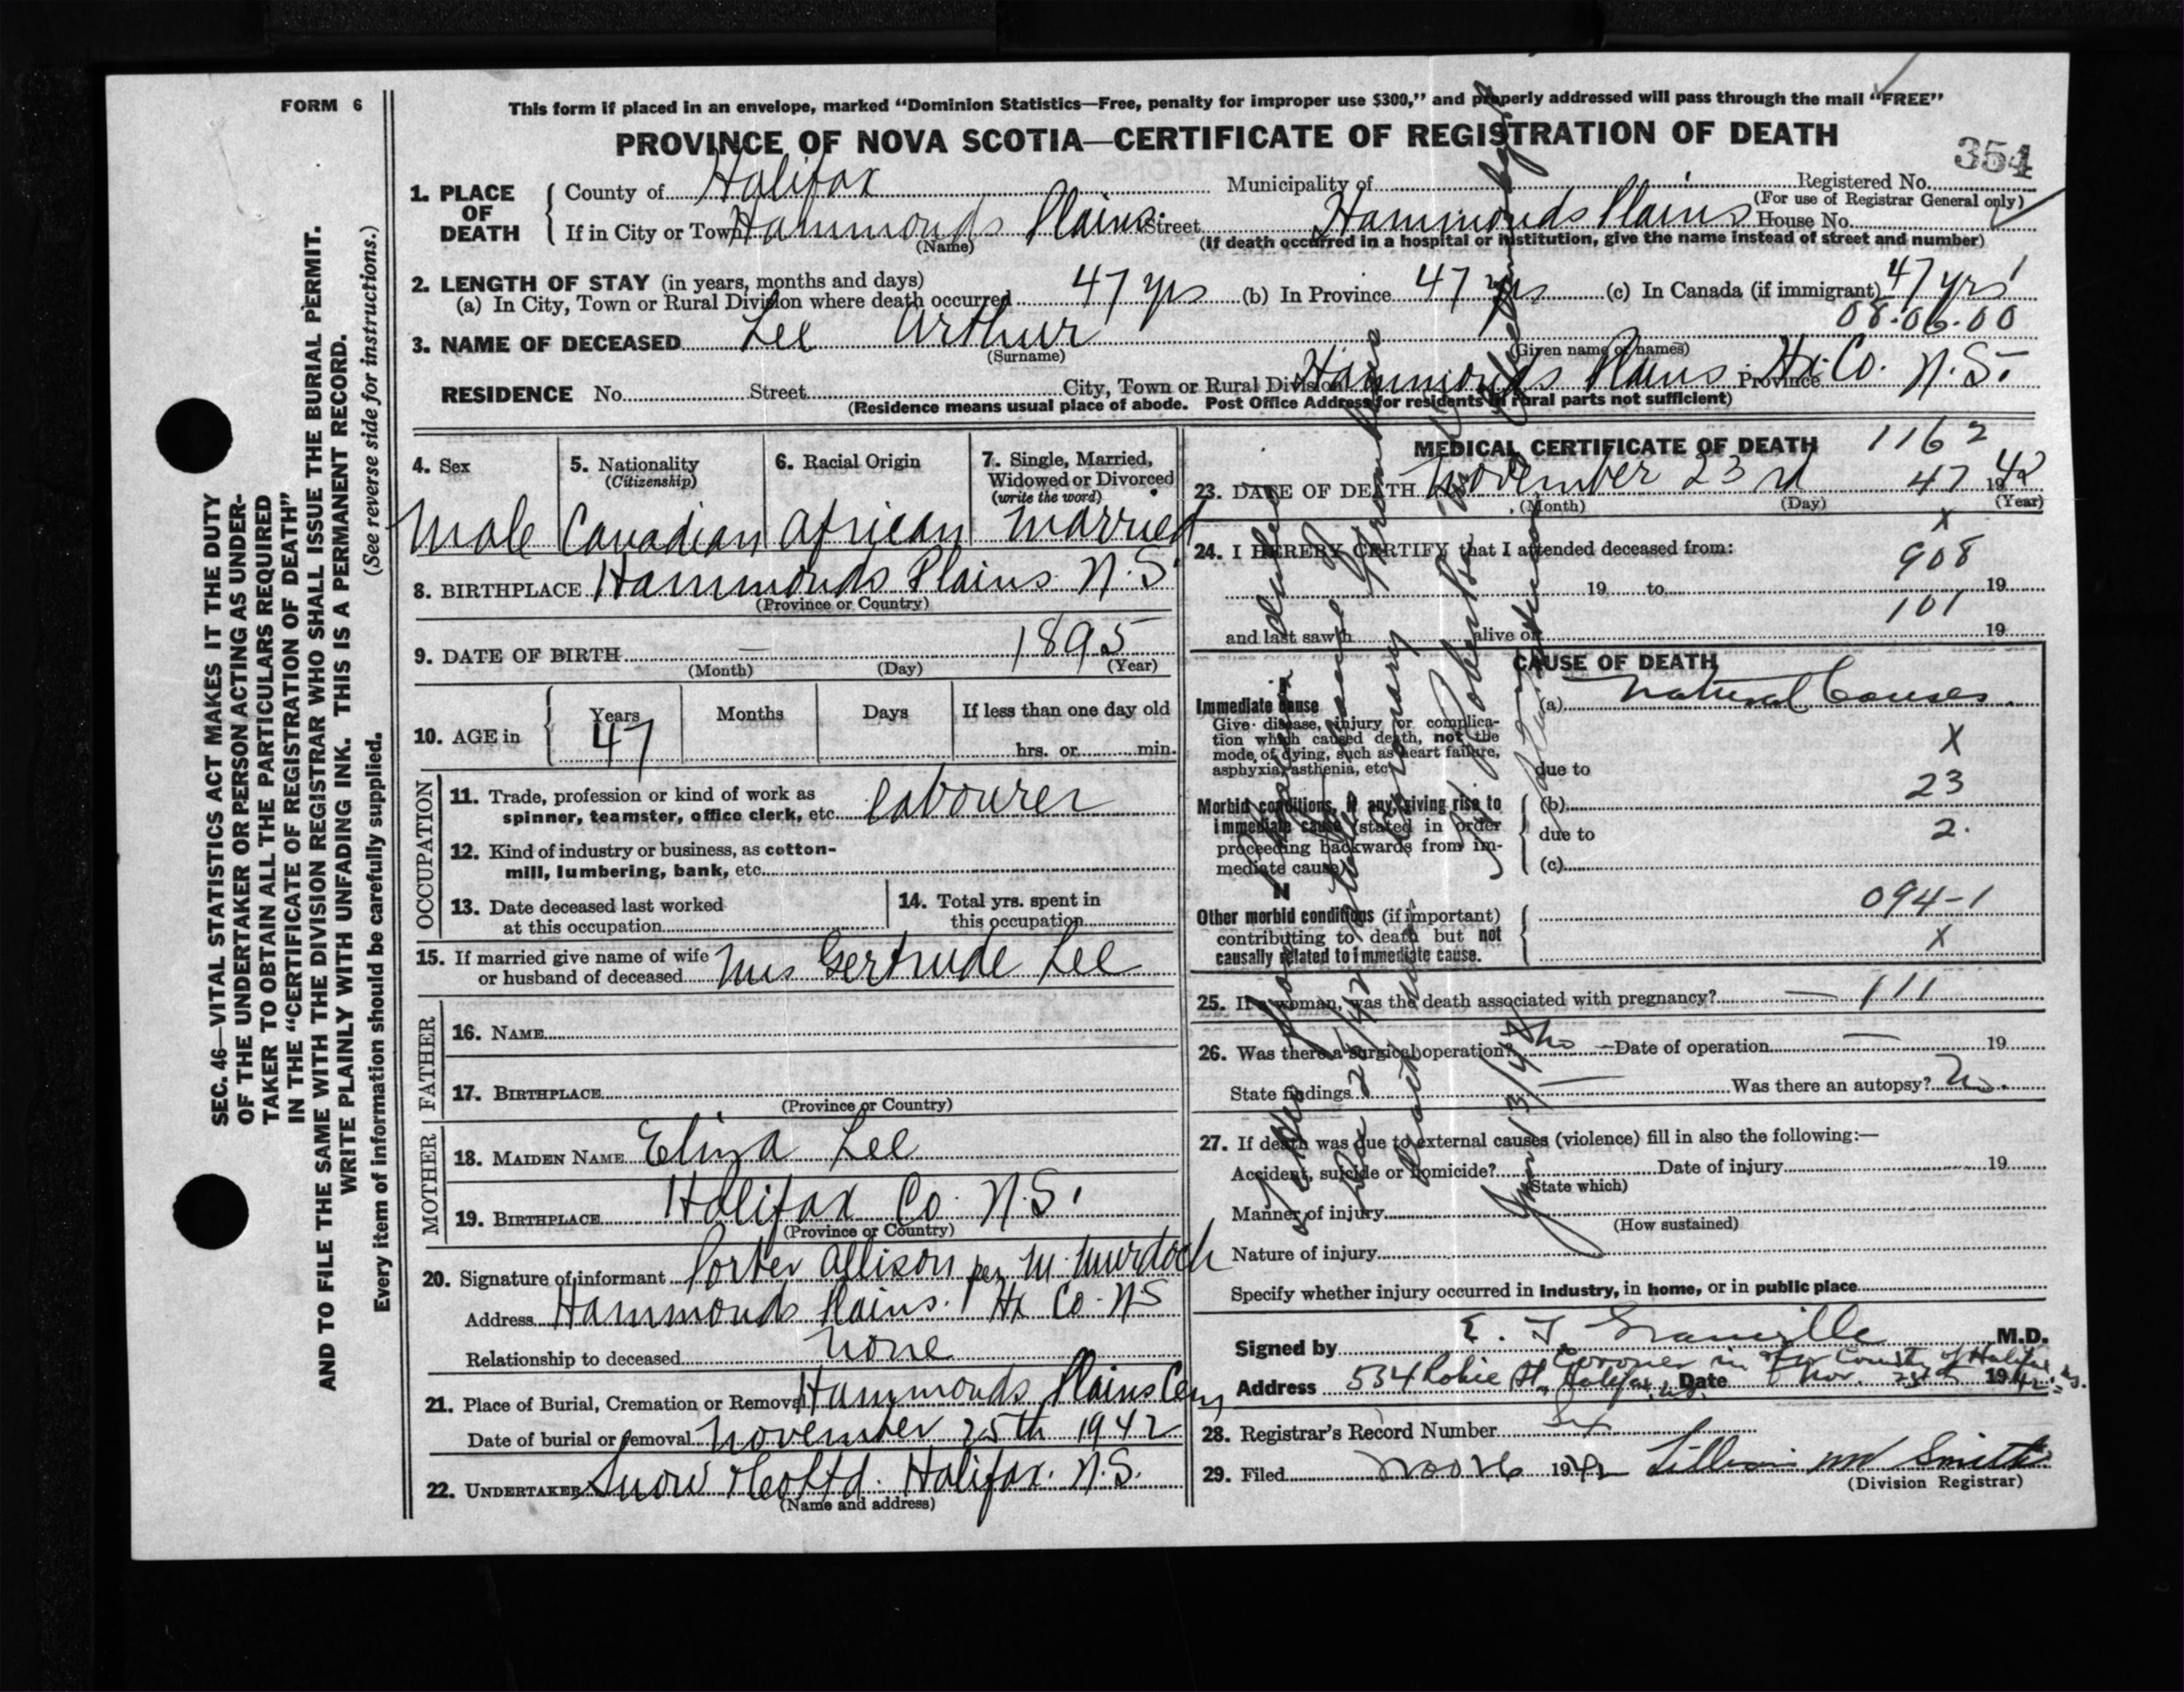 FORM 6
This form if placed in an envelope, marked “Dominion Statistics—Free, penalty for improper use $300,” and properly addressed will pass through the mail “FREE”
PROVINCE OF NOVA SCOTIA—CERTIFICATE OF REGISTRATION OF DEATH
354
1. PLACE OF DEATH
County of Halifax Municipality of Registered No.
(For use of Registrar General only)
If in City or Town Hammonds Plains Street Hammonds Plains House No.
(Name) (If death occurred in a hospital or institution, give the name instead of street and number)
2. LENGTH OF STAY (in years, months and days)
(a) In City, Town or Rural Division where death occurred 47 yrs (b) In Province 47 yrs (c) In Canada (if immigrant) 47 yrs
08.06.00
3. NAME OF DECEASED Lee Arthur
(Surname) (Given name or names)
RESIDENCE No. Street City, Town or Rural Division Hammonds Plains Hx. Co. Province N.S.
(Residence means usual place of abode. Post Office Address for residents in rural parts not sufficient)
4. Sex
Male
5. Nationality
(Citizenship)
Canadian
6. Racial Origin
African
7. Single, Married,
Widowed or Divorced
(write the word)
Married
8. BIRTHPLACE Hammonds Plains N.S.
(Province or Country)
9. DATE OF BIRTH — 1895
(Month) (Day) (Year)
10. AGE in
Years Months Days If less than one day old
47 hrs. or min.
OCCUPATION
11. Trade, profession or kind of work as
spinner, teamster, office clerk, etc. Labourer
12. Kind of industry or business, as cotton-
mill, lumbering, bank, etc.
13. Date deceased last worked
at this occupation
14. Total yrs. spent in
this occupation
15. If married give name of wife
or husband of deceased Mrs Gertrude Lee
FATHER
16. NAME
17. BIRTHPLACE
(Province or Country)
MOTHER
18. MAIDEN NAME Eliza Lee
19. BIRTHPLACE Halifax Co. N.S.
(Province or Country)
20. Signature of informant Porter Allison per M. Murdoch
Address Hammonds Plains. Hx Co. NS
Relationship to deceased None
21. Place of Burial, Cremation or Removal Hammonds Plains Cem
Date of burial or removal November 25th 1942
22. UNDERTAKER Snow & Co Ltd. Halifax. N.S.
(Name and address)
MEDICAL CERTIFICATE OF DEATH 1162
23. DATE OF DEATH November 23rd 47 1942
(Month) (Day) (Year)
X
24. I HEREBY CERTIFY that I attended deceased from:
908
19 to 19
101
and last saw h alive on 19
CAUSE OF DEATH
Immediate cause
Give disease, injury or complica-
tion which caused death, not the
mode of dying, such as heart failure,
asphyxia, asthenia, etc.
(a) Natural Causes
X
due to
23
Morbid conditions, if any, giving rise to
immediate cause (stated in order
proceeding backwards from im-
mediate cause)
(b)
due to 2.
(c)
II
Other morbid conditions (if important)
contributing to death but not
causally related to immediate cause.
094-1
X
25. If a woman, was the death associated with pregnancy? — 111
26. Was there a surgical operation? No —Date of operation — 19
State findings — Was there an autopsy? No.
27. If death was due to external causes (violence) fill in also the following:—
Accident, suicide or homicide? Date of injury 19
(State which)
Manner of injury
(How sustained)
Nature of injury
Specify whether injury occurred in industry, in home, or in public place
Signed by E. T. Granville M.D.
Coroner in the County of Halifax
Address 534 Robie St., Halifax, N.S. Date Nov. 23rd 1942
28. Registrar's Record Number Six
29. Filed Nov 26 1942 Lillian M Smith
(Division Registrar)
SEC. 46—VITAL STATISTICS ACT MAKES IT THE DUTY
OF THE UNDERTAKER OR PERSON ACTING AS UNDER-
TAKER TO OBTAIN ALL THE PARTICULARS REQUIRED
IN THE “CERTIFICATE OF REGISTRATION OF DEATH”
AND TO FILE THE SAME WITH THE DIVISION REGISTRAR WHO SHALL ISSUE THE BURIAL PERMIT.
WRITE PLAINLY WITH UNFADING INK. THIS IS A PERMANENT RECORD.
(See reverse side for instructions.)
Every item of information should be carefully supplied.